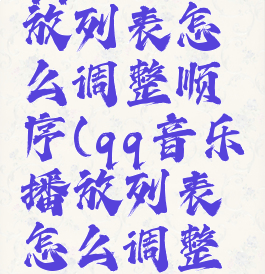 放列表怎
么调整顺
序(qq音乐
播放列表
怎么调整